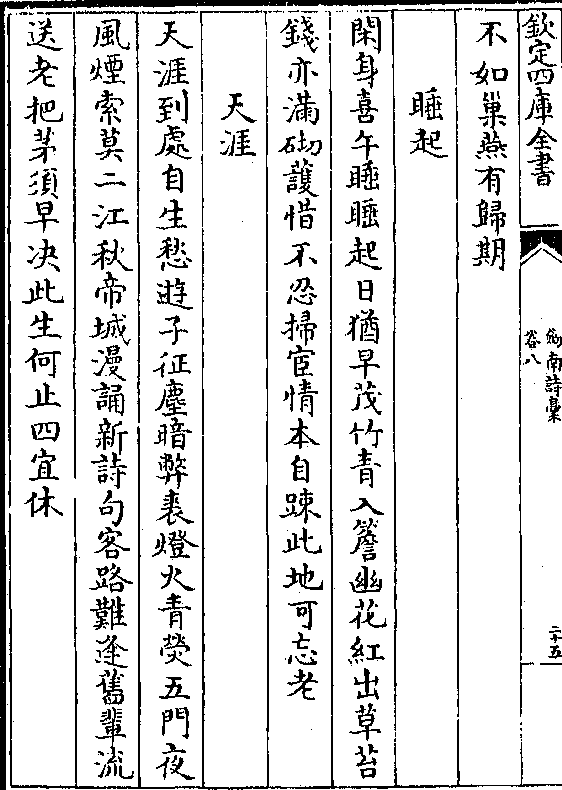 欽定四庫全書
劒南詩稾
卷八
二十五
不如巢燕有歸期
睡起
閑身喜午睡睡起日猶早茂竹青入簷幽花紅出草苔
錢亦滿砌護惜不忍掃宦情本自踈此地可忘老
天涯
天涯到處自生愁遊子征塵暗弊裘燈火青熒五門夜
風煙索莫二江秋帝城漫誦新詩句客路難逢舊輩流
送老把茅須早决此生何止四宜休